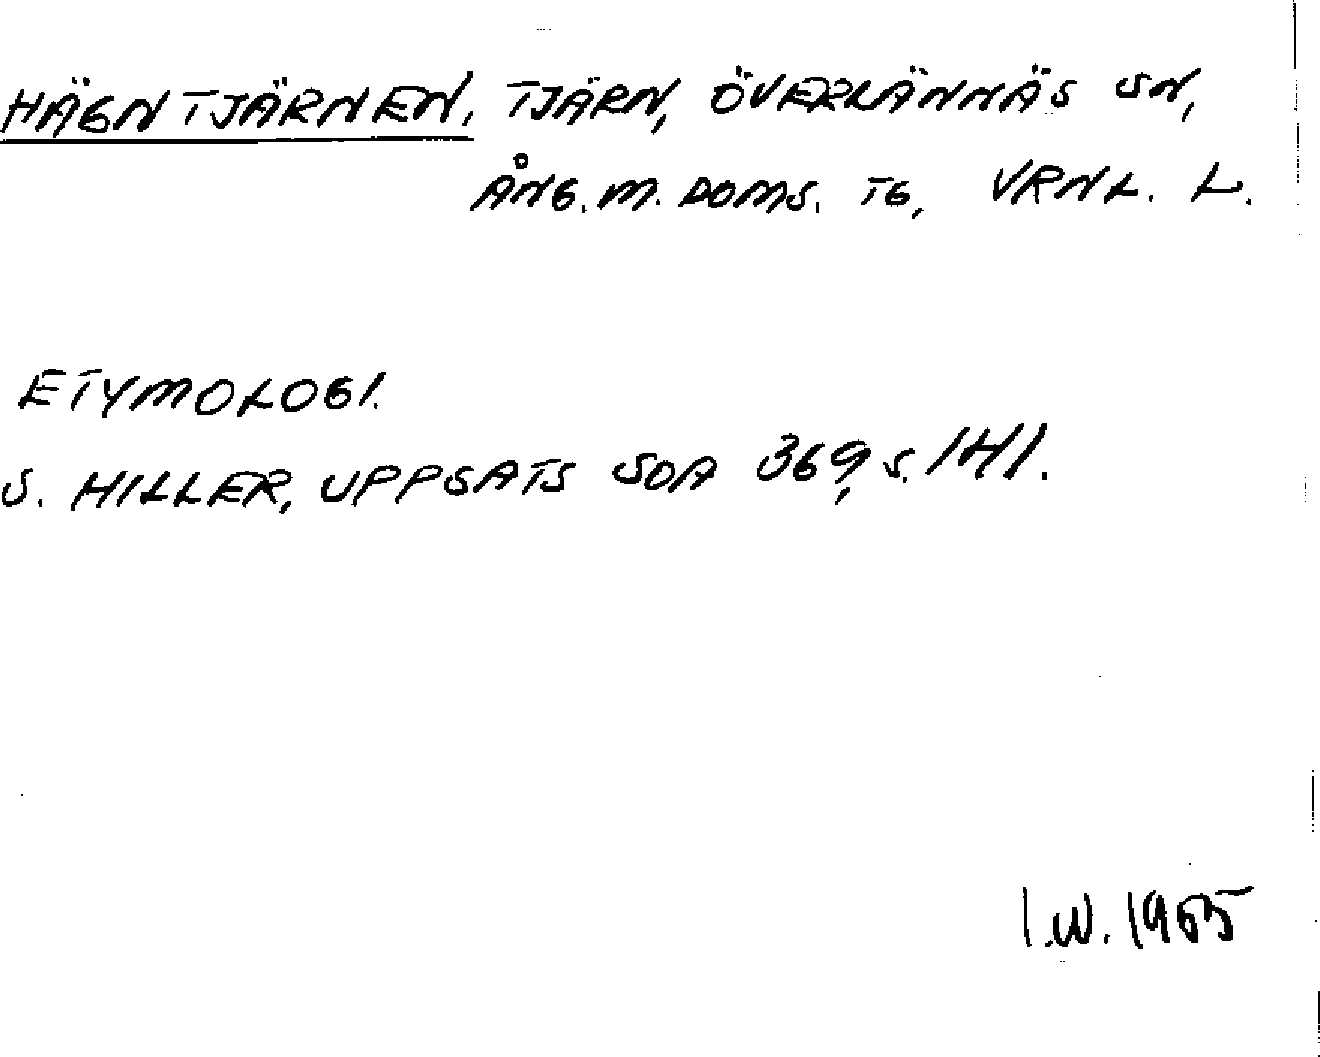 HÄGNTJÄRNEN, TJÄRN, ÖVERLÄNNÄS SN,
ÅNG. M. DOMS. TG, VRNL. L.
ETYMOLOGI.
S. HILLER, UPPSATS SOA 369, S. 141.
I.W. 1965